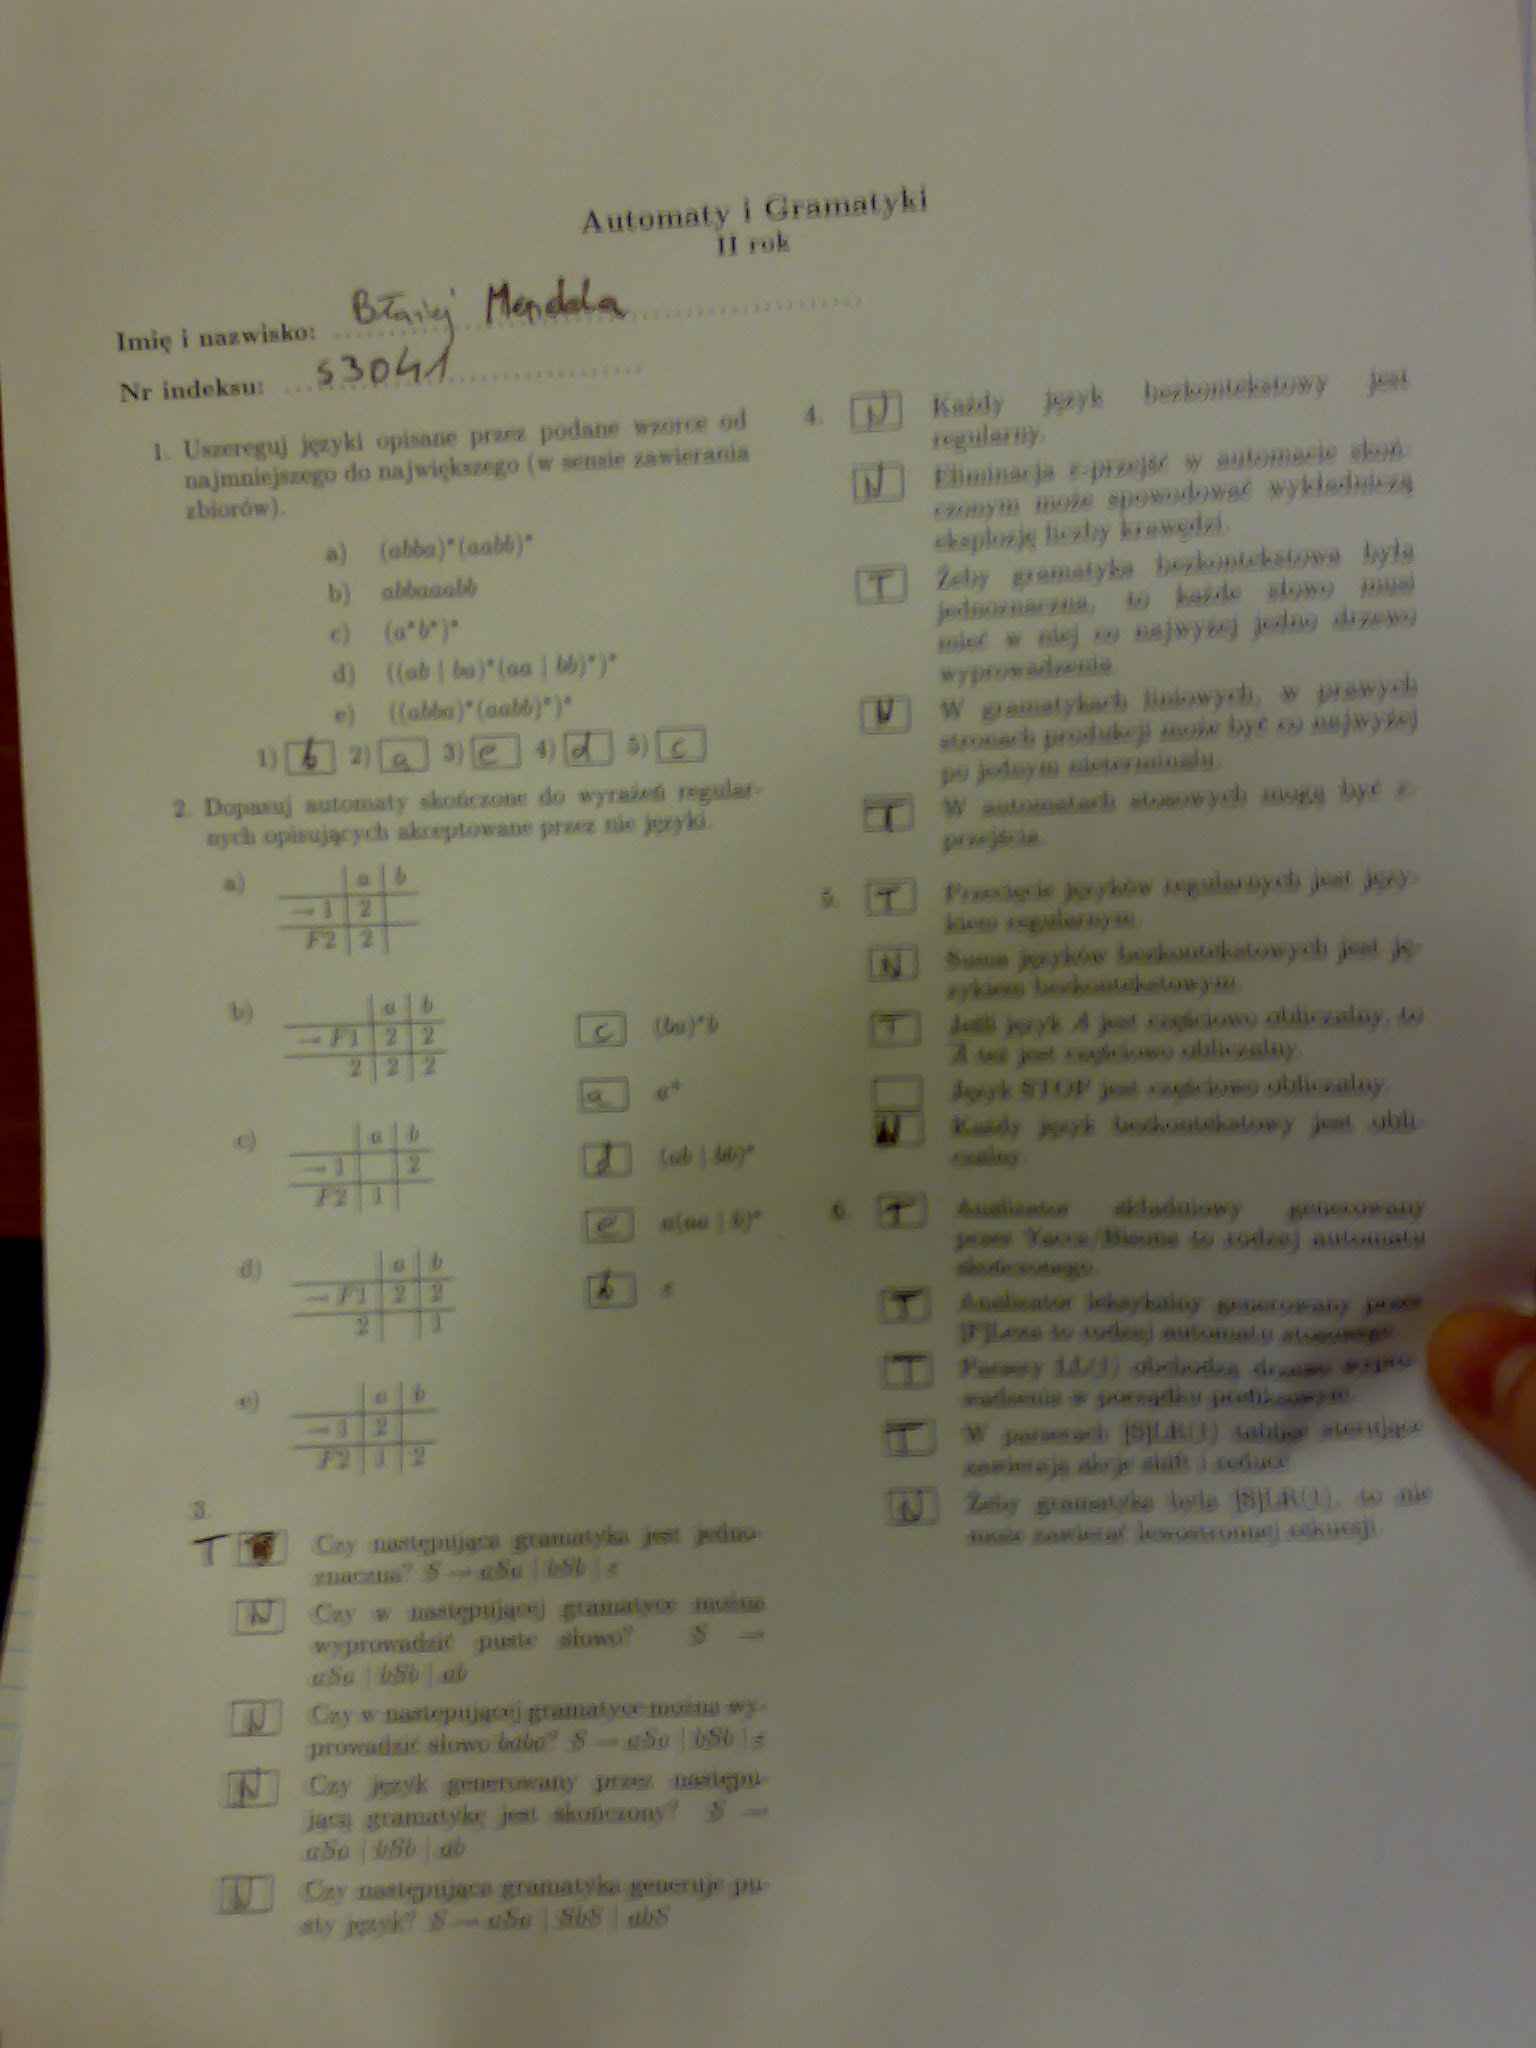 Automaty i Gramatyki
II rok
Imię i nazwisko: Błażej Mendala
Nr indeksu: s3041
1. Uszereguj języki opisane przez podane wzorce od
najmniejszego do największego (w sensie zawierania
zbiorów).
a) (abba)*(aabb)*
b) abbaaabb
c) (a*b*)*
d) ((ab | ba)*(aa | bb)*)*
e) ((abba)*(aabb)*)*
1) b 2) a 3) e 4) d 5) c
2. Dopasuj automaty skończone do wyrażeń regular-
nych opisujących akceptowane przez nie języki.
a)
a b
→ 1 2
F2 2
b)
a b
→ F1 2 2
2 2 2
c)
a b
→ 1 2
F2 1
d)
a b
→ F1 2 2
2 1
e)
a b
→ 1 2
F2 1 2
c (ba)*b
a a+
d (ab | bb)*
e a(aa | b)*
b ε
3.
T Czy następująca gramatyka jest jedno-
znaczna? S → aSa | bSb | ε
N Czy w następującej gramatyce można
wyprowadzić puste słowo? S →
aSa | bSb | ab
N Czy w następującej gramatyce można wy-
prowadzić słowo baba? S → aSa | bSb | ε
N Czy język generowany przez następu-
jącą gramatykę jest skończony? S →
aSa | bSb | ab
N Czy następująca gramatyka generuje pu-
sty język? S → aSa | SbS | abS
4. N Każdy język bezkontekstowy jest
regularny.
N Eliminacja ε-przejść w automacie skoń-
czonym może spowodować wykładniczą
eksplozję liczby krawędzi.
T Żeby gramatyka bezkontekstowa była
jednoznaczna, to każde słowo musi
mieć w niej co najwyżej jedno drzewo
wyprowadzenia.
N W gramatykach liniowych, w prawych
stronach produkcji może być co najwyżej
po jednym nieterminalu.
T W automatach stosowych mogą być ε-
przejścia.
5. T Przecięcie języków regularnych jest języ-
kiem regularnym.
N Suma języków bezkontekstowych jest ję-
zykiem bezkontekstowym.
T Jeśli język A jest częściowo obliczalny, to
A też jest częściowo obliczalny.
Język STOP jest częściowo obliczalny.
N Każdy język bezkontekstowy jest obli-
czalny.
6. T Analizator składniowy generowany
przez Yacca/Bisona to rodzaj automatu
skończonego.
T Analizator leksykalny generowany przez
[F]Lexa to rodzaj automatu stosowego.
T Parsery LL(1) obchodzą drzewo wypro-
wadzenia w porządku prefiksowym.
T W parserach [S]LR(1) tablice sterujące
zawierają akcje shift i reduce.
N Żeby gramatyka była [S]LR(1), to nie
może zawierać lewostronnej rekursji.